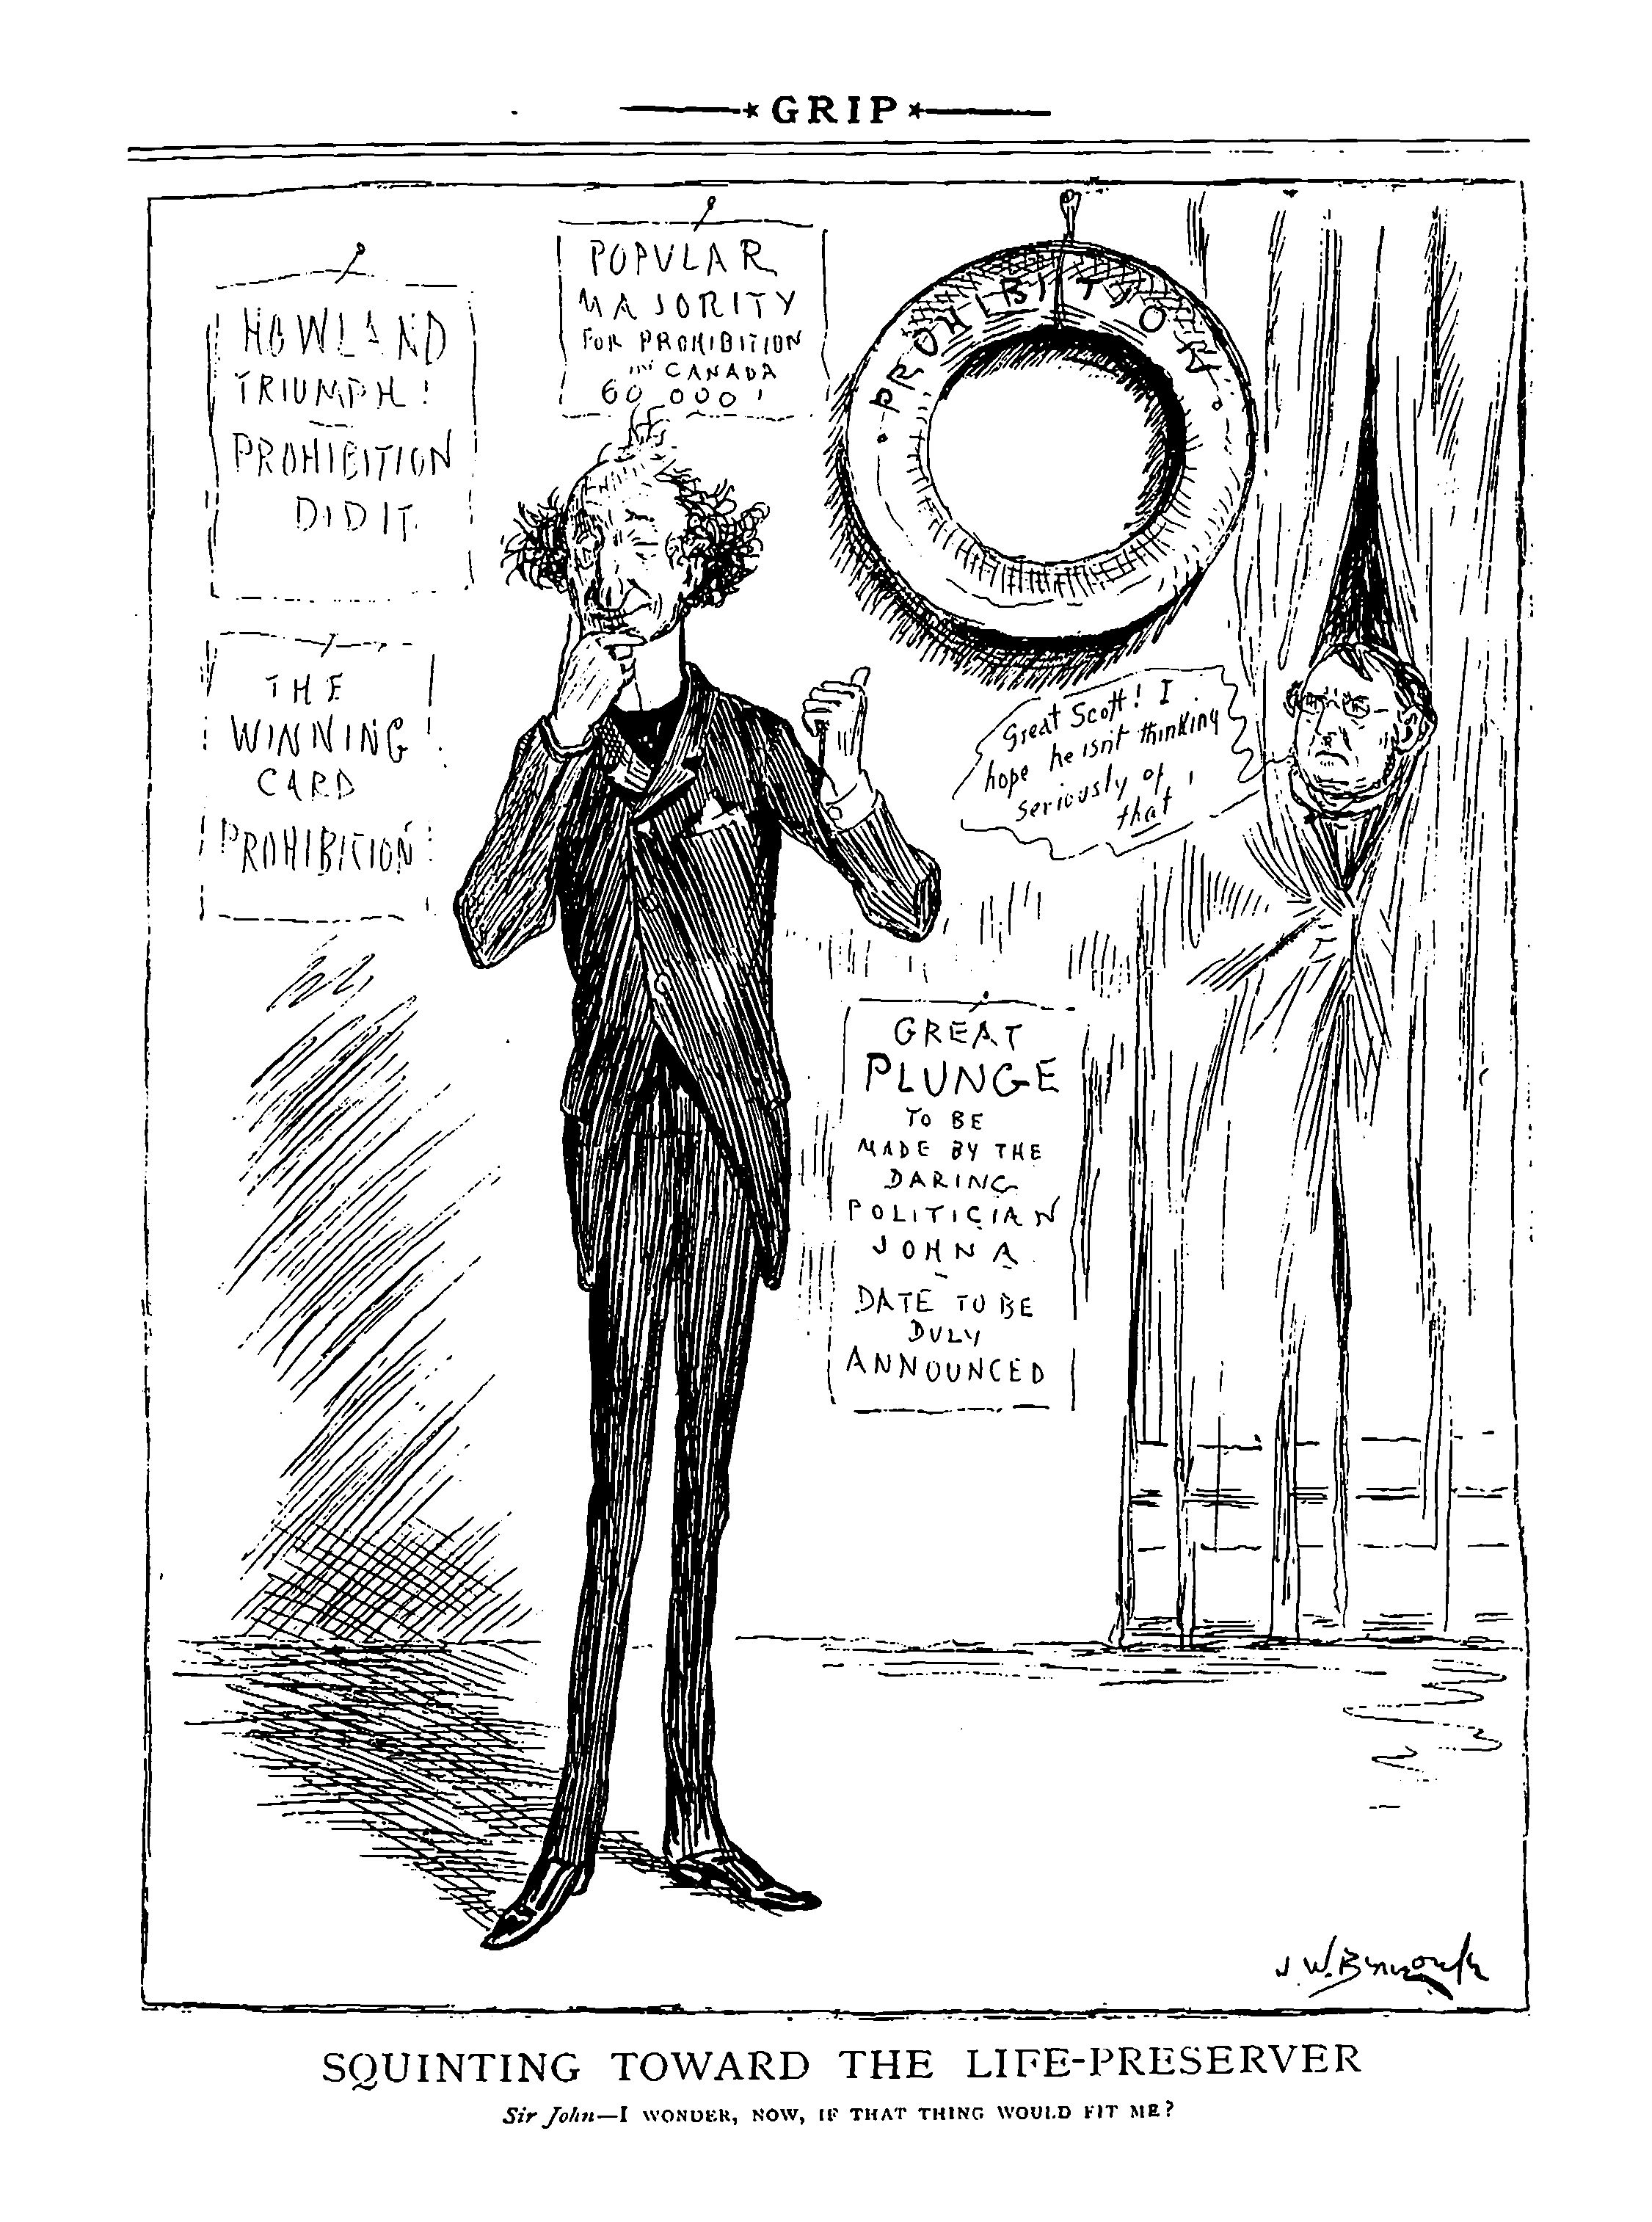 GRIP
HOWLAND
TRIUMPH!
PROHIBITION
DID IT.
POPULAR
MAJORITY
FOR PROHIBITION
IN CANADA
60,000!
• PROHIBITION •
THE
WINNING
CARD
PROHIBITION!
Great Scott! I
hope he isn't thinking
seriously of
that!
GREAT
PLUNGE
TO BE
MADE BY THE
DARING
POLITICIAN
JOHN A
DATE TO BE
DULY
ANNOUNCED
J.W. Bengough
SQUINTING TOWARD THE LIFE-PRESERVER
Sir John—I WONDER, NOW, IF THAT THING WOULD FIT ME?